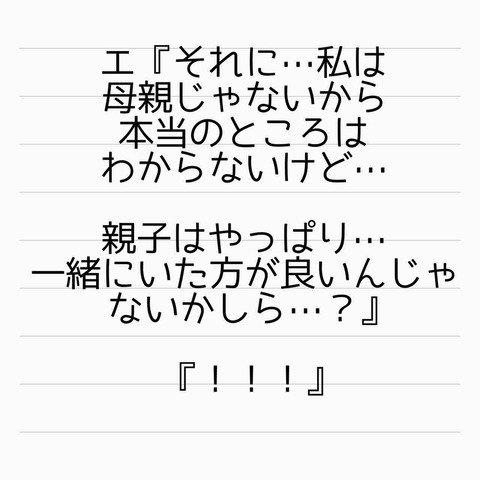 エ『それに…私は
母親じゃないから
本当のところは
わからないけど…
親子はやっぱり…
一緒にいた方が良いんじゃ
ないかしら…？』
『！！！』